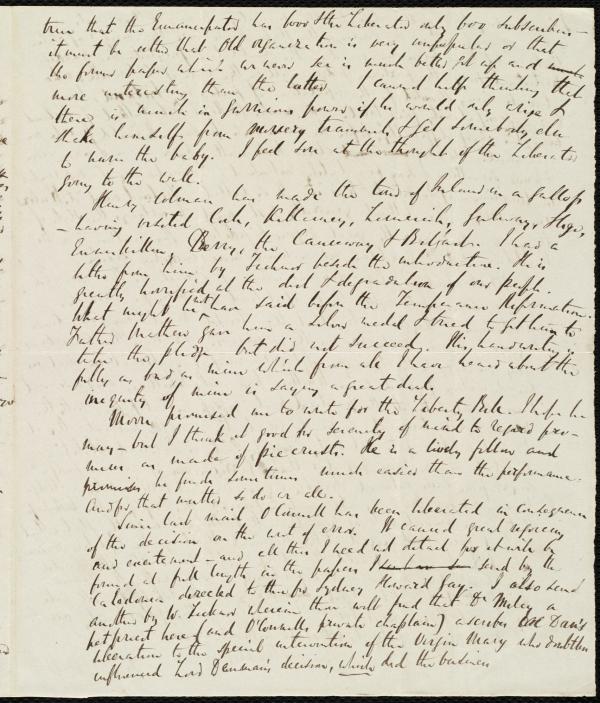 true that the Emancipated has 1000 & the Liberator only 600 subscribers—
it must be either that Old organization is very unpopular or that
the former paper which we never see is much better got up and
more interesting than the latter. I cannot help thinking that
there is much in Garrisons power if he would only arise &
shake himself from nursery trammels & get somebody else
to nurse the baby. I feel sore at the thought of the Liberator
going to the wall.
Henry Colman has made the tour of Ireland in a gallop
— having visited Cork, Killarney, Limerick, Galway, Sligo,
Enniskillen, Derry, the Causeway & Belfast. I had a
letter from him by Ticknor beside the introduction. He is
greatly horrified at the dirt & degradation of our people.
What might he not have said before the Temperance Reformation.
Father Mathew gave him a silver medal & tried to get him to
take the pledge but did not succeed. His handwriting is
fully as bad as mine which from all I have heard about the
iniquity of mine is saying a great deal.
Moore promised me to write for the Liberty Bell. I hope he
may — but I think it good for serenity of mind to regard pro-
mises as made of pie crust. He is a lively fellow and
promises he finds sometimes much easier than the performance.
And for that matter so do we all.
Since last mail O'Connell has been liberated in consequence
of the decision on the writ of error. It caused great rejoicing
and excitement — and all this I need not detail for it will be
found at full length in the papers I send by the
Caledonia directed to thee for Sydney Howard Gay. I also send
another by W. Ticknor wherein thou will find that Dr Miley a
pet priest here (and O'Connell's private chaplain) ascribes Dan's
liberation to the special intervention of the Virgin Mary who doubtless
influenced Lord Denman's decision, which did the business